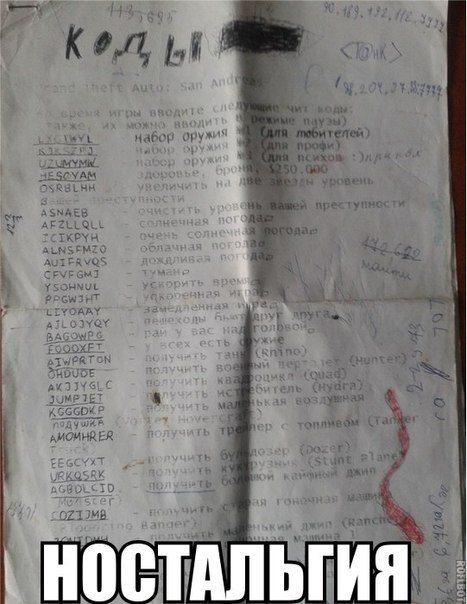 113,685
КОДЫ
<ТАНК>
Grand Theft Auto: San Andreas
Во время игры вводите следующие чит коды:
также, их можно вводить в режиме паузы)
LXGIWYL - набор оружия №1 (для любителей)
KJKSZPJ - набор оружия №2 (для профи)
UZUMYMW - набор оружия №3 (для психов :) прикол
HESOYAM - здоровье, броня, $250.000
OSRBLHH - увеличить на две звезды уровень
вашей преступности
ASNAEB - очистить уровень вашей преступности
AFZLLQLL - солнечная погода
ICIKPYH - очень солнечная погода
ALNSFMZO - облачная погода
AUIFRVQS - дождливая погода
CFVFGMJ - туман
YSOHNUL - ускорить время
PPGWJHT - ускоренная игра
LIYOAAY - замедленная игра
AJLOJYQY - пешеходы бьют друг друга
BAGOWPG - рай у вас над головой
FOOOXFT - у всех есть оружие
AIWPRTON - получить танк (Rhino)
OHDUDE - получить военный вертолет (Hunter)
AKJJYGLC - получить квадроцикл (Quad)
JUMPJET - получить истребитель (Hydra)
KGGGDKP - получить маленькая воздушная
подушка (Vortex Hovercraft)
AMOMHRER - получить трейлер с топливом (Tanker
Truck)
EEGCYXT - получить бульдозер (Dozer)
URKQSRK - получить кукурузник (Stunt Plane)
AGBDLCID - получить большой кайфный джип
(Monster)
CQZIJMB - получить старая гоночная машина
Banger)
маленький джип (Rancher)
гоночная машина 1
НОСТАЛЬГИЯ